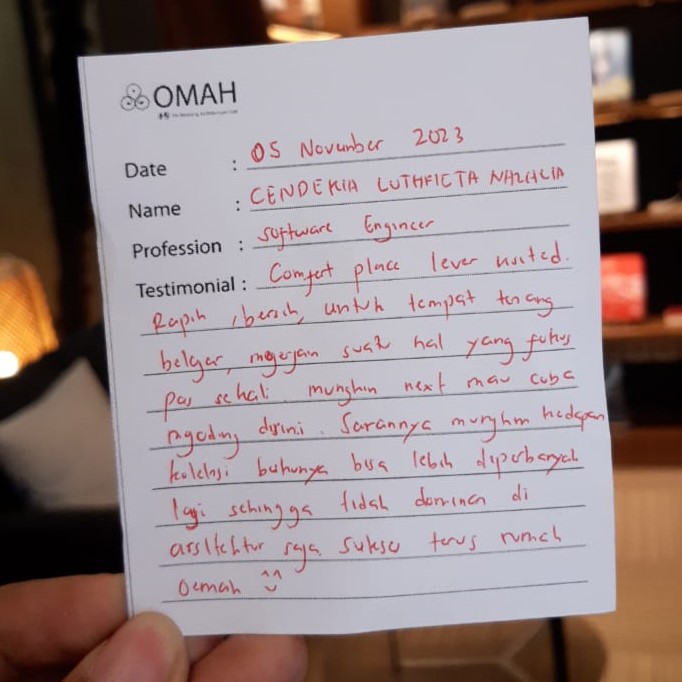 OMAH
Date : 05 November 2023
Name : CENDEKIA LUTHFICTA NAZALIA
Profession : Software Engineer
Testimonial : Comfort place I ever visited.
Rapih, bersih, untuk tempat tenang
belajar, ngerjain suatu hal yang fokus
pas sekali. mungkin next mau coba
ngoding disini. Sarannya mungkin kedepan
koleksi bukunya bisa lebih diperbanyak
lagi sehingga tidak dominan di
arsitektur saja sukses terus rumah
Oemah ^^